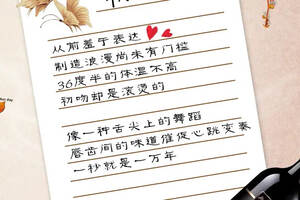 从前羞于表达
制造浪漫尚未有门槛
36度半的体温不高
初吻却是滚烫的
像一种舌尖上的舞蹈
唇齿间的味道催促心跳变奏
一秒就是一万年